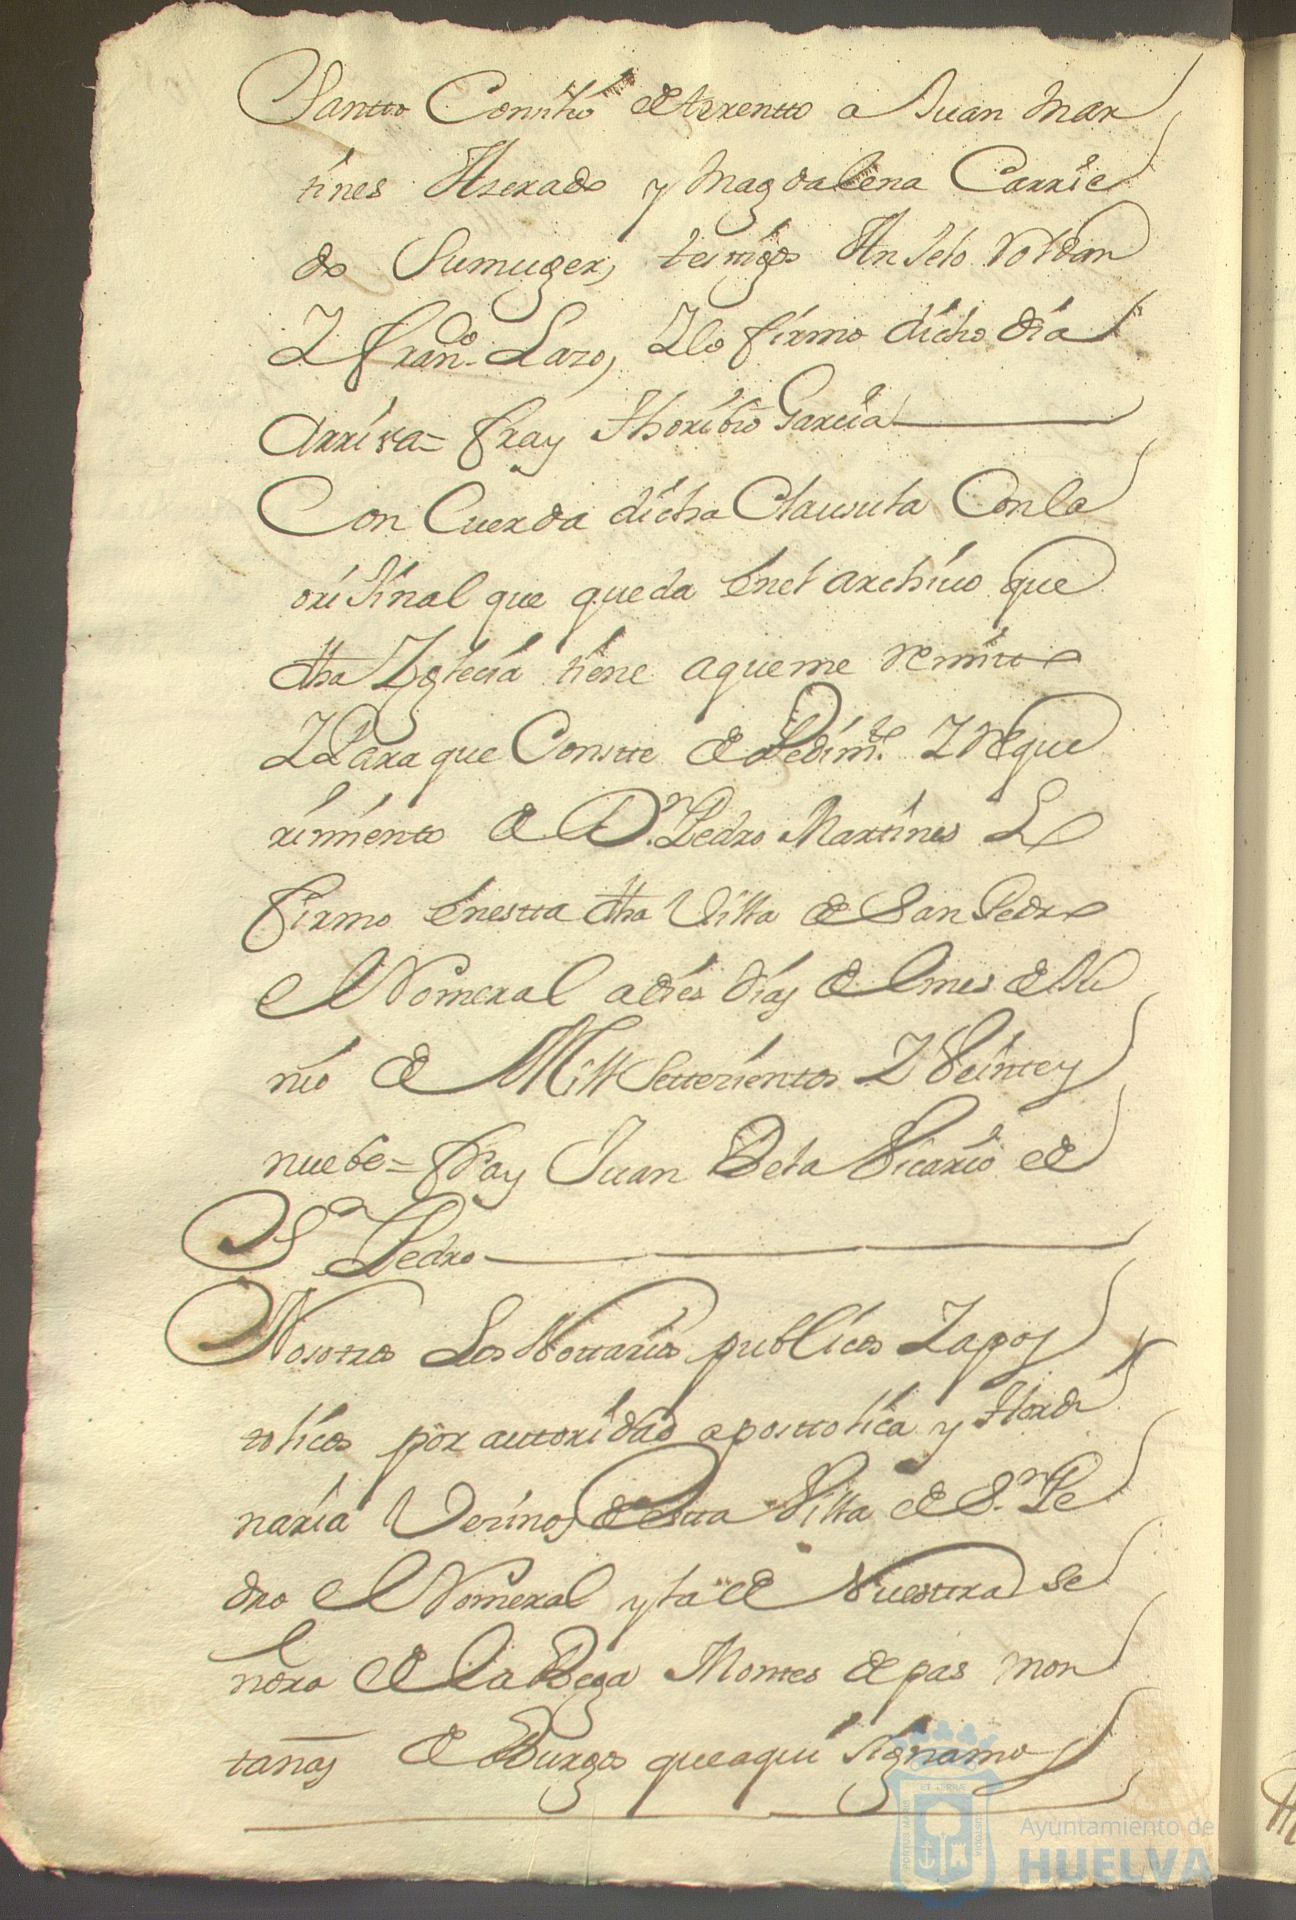 Santto Conzilio de trentto a Juan Mar
tines Azerado y Magdalena Carrie
do Sumuger, testigos Anselo Roldan
Y Fran.co Lazo, Ylo firmo dicho dia
Arriva = fray thoribio Garcia
Con Cuerda dicha Clausula Conla
orijinal que queda enel archivo que
dha Yglecia tiene aqueme remitto
YPara que Constte de Pedim.to Y Reque
rimiento de D.n Pedro Martines Lo
firmo enestta dha Villa de San Pedro
el Romeral adies dias de el mes de Ju
nio de Mill Settezientos Y Veinte y
nuebe = fray Juan Dela Vicario de
S.n Pedro
Nosotros Los Nottarios publicos Yapos
tolicos por autoridad aposttolica y Hordi
naria Vezinos de Estta Villa de S.n Pe
dro el Romeral y la de Nuesttra Se
ñora de la Bega Montes de pas mon
tañas de Burgos que aqui signamos
Ayuntamiento de
HUELVA